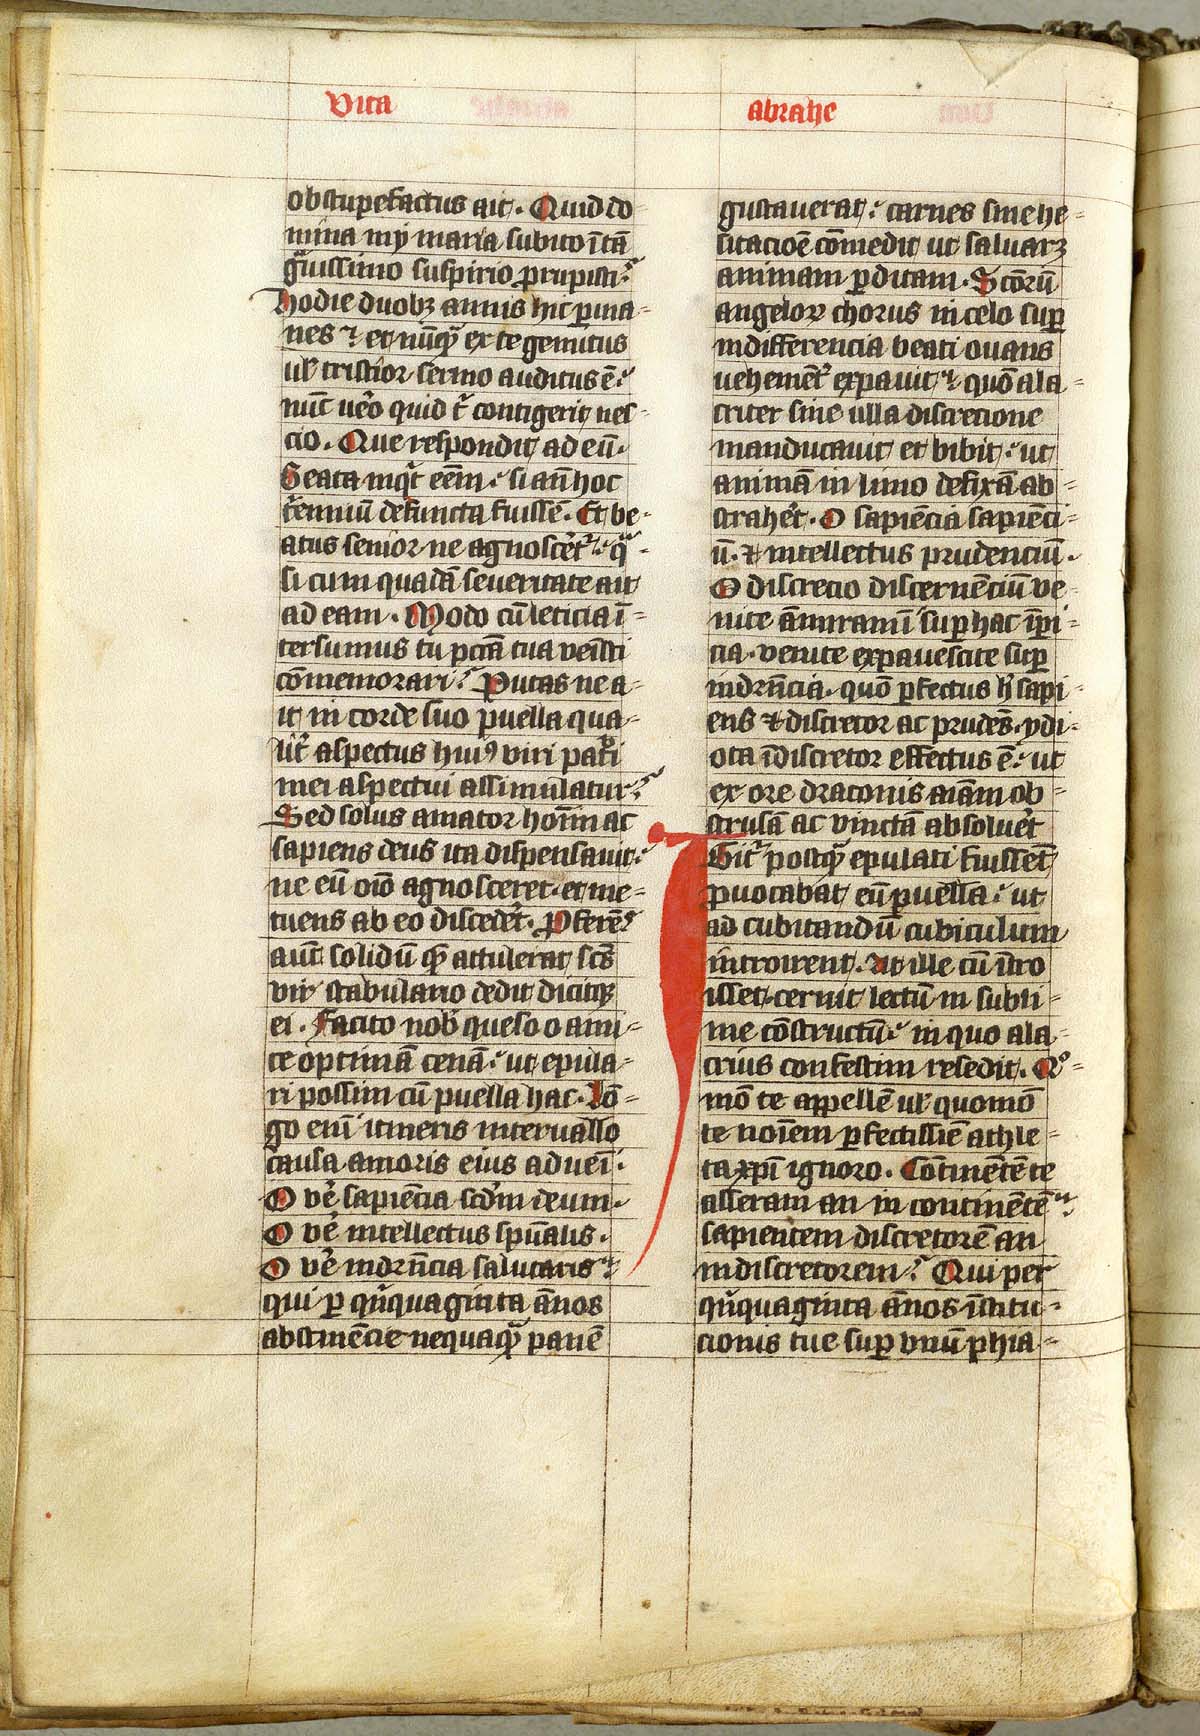 Vita
abrahe
obstupefactus ait. Quid do-
mina mÿ maria subito ītā
gͣuissimo suspirio prupisti?
Hodie duobꝫ annis hic ꝑma-
nes: et nūqͣ ex te gemitus
ul' tristior sermo auditus ē:
nūc ūo quid t' contigerit nes-
cio. Que respondit ad eū.
Beata inqͥt eēm: si an̄ hoc
t'enniū defuncta fuissē. Et be-
atus senior ne agnoscēt': qͣ-
si cum quadā seueritate ait
ad eam. Modo cū leticia ī-
tersumus tu pctā tua venisti
cōmemorari? Putas ne a-
it in corde suo puella qua-
lit' aspectus huiꝰ viri pat'i
mei aspectui assimulatur?
Sed solus amator hoīm ac
sapiens deus ita dispensauit:
ne eū oīo agnosceret. et me-
tuens ab eo discedet'. Pferēs
aut̄ solidū qͣ attulerat scs̄
vir stabulario dedit dicitqꝫ
ei. Facito nob' queso o ami-
ce optimā cenā: ut epula-
ri possim cū puella hac. Lō-
go enī itineris interuallo
causa amoris eius adueni.
O ve' sapiēcia scd'm deum.
O ve' intellectus spūalis.
O ve' indrn̄cia salutaris:
qui ꝑ qn̄quaginta ānos
abstinēcie nequaqͣ panē
gustauerat: carnes sine he-
sitacioē cōmedit ut saluarꝫ
animam ꝑditam. Sctōrū
angeloꝝ chorus in celo suꝑ
indifferencia beati ouans
uehemēt' expauit: quō ala-
criter sine ulla discretione
manducauit et bibit: ut
animā in limo defixā ab-
strahet'. O sapiēcia sapiēci-
ū. et intellectus prudenciū.
O discrecio discernēciū ve-
nite āmiramī suꝑ hac īpi-
cia. venite expauescite suꝑ
indrn̄cia. quō ꝑfectus h' sapi-
ens et discretor ac prudēs. ydi-
ota īdiscretor effectus ē: ut
ex ore draconis aiām ob-
strusā ac vinctā absoluet'
Igit' postqͣ epulati fuissēt
ꝓuocabat eū puella: ut
ad cubitandū cubiculum
introirent. At ille cū ītro
isset. cernit lectū in subli-
me cōstructū: in quo ala-
crius confestim resedit. Qͦ-
mō te appellē ul' quomō
te noīem ꝑfectissīe athle-
ta xp̄i ignoro. Cōtinētē te
asseram an in continētē?
sapientem discretorē an
indiscretorem? Qui per
qn̄quaginta ānos īstitu-
cionis tue suꝑ vnū phia-